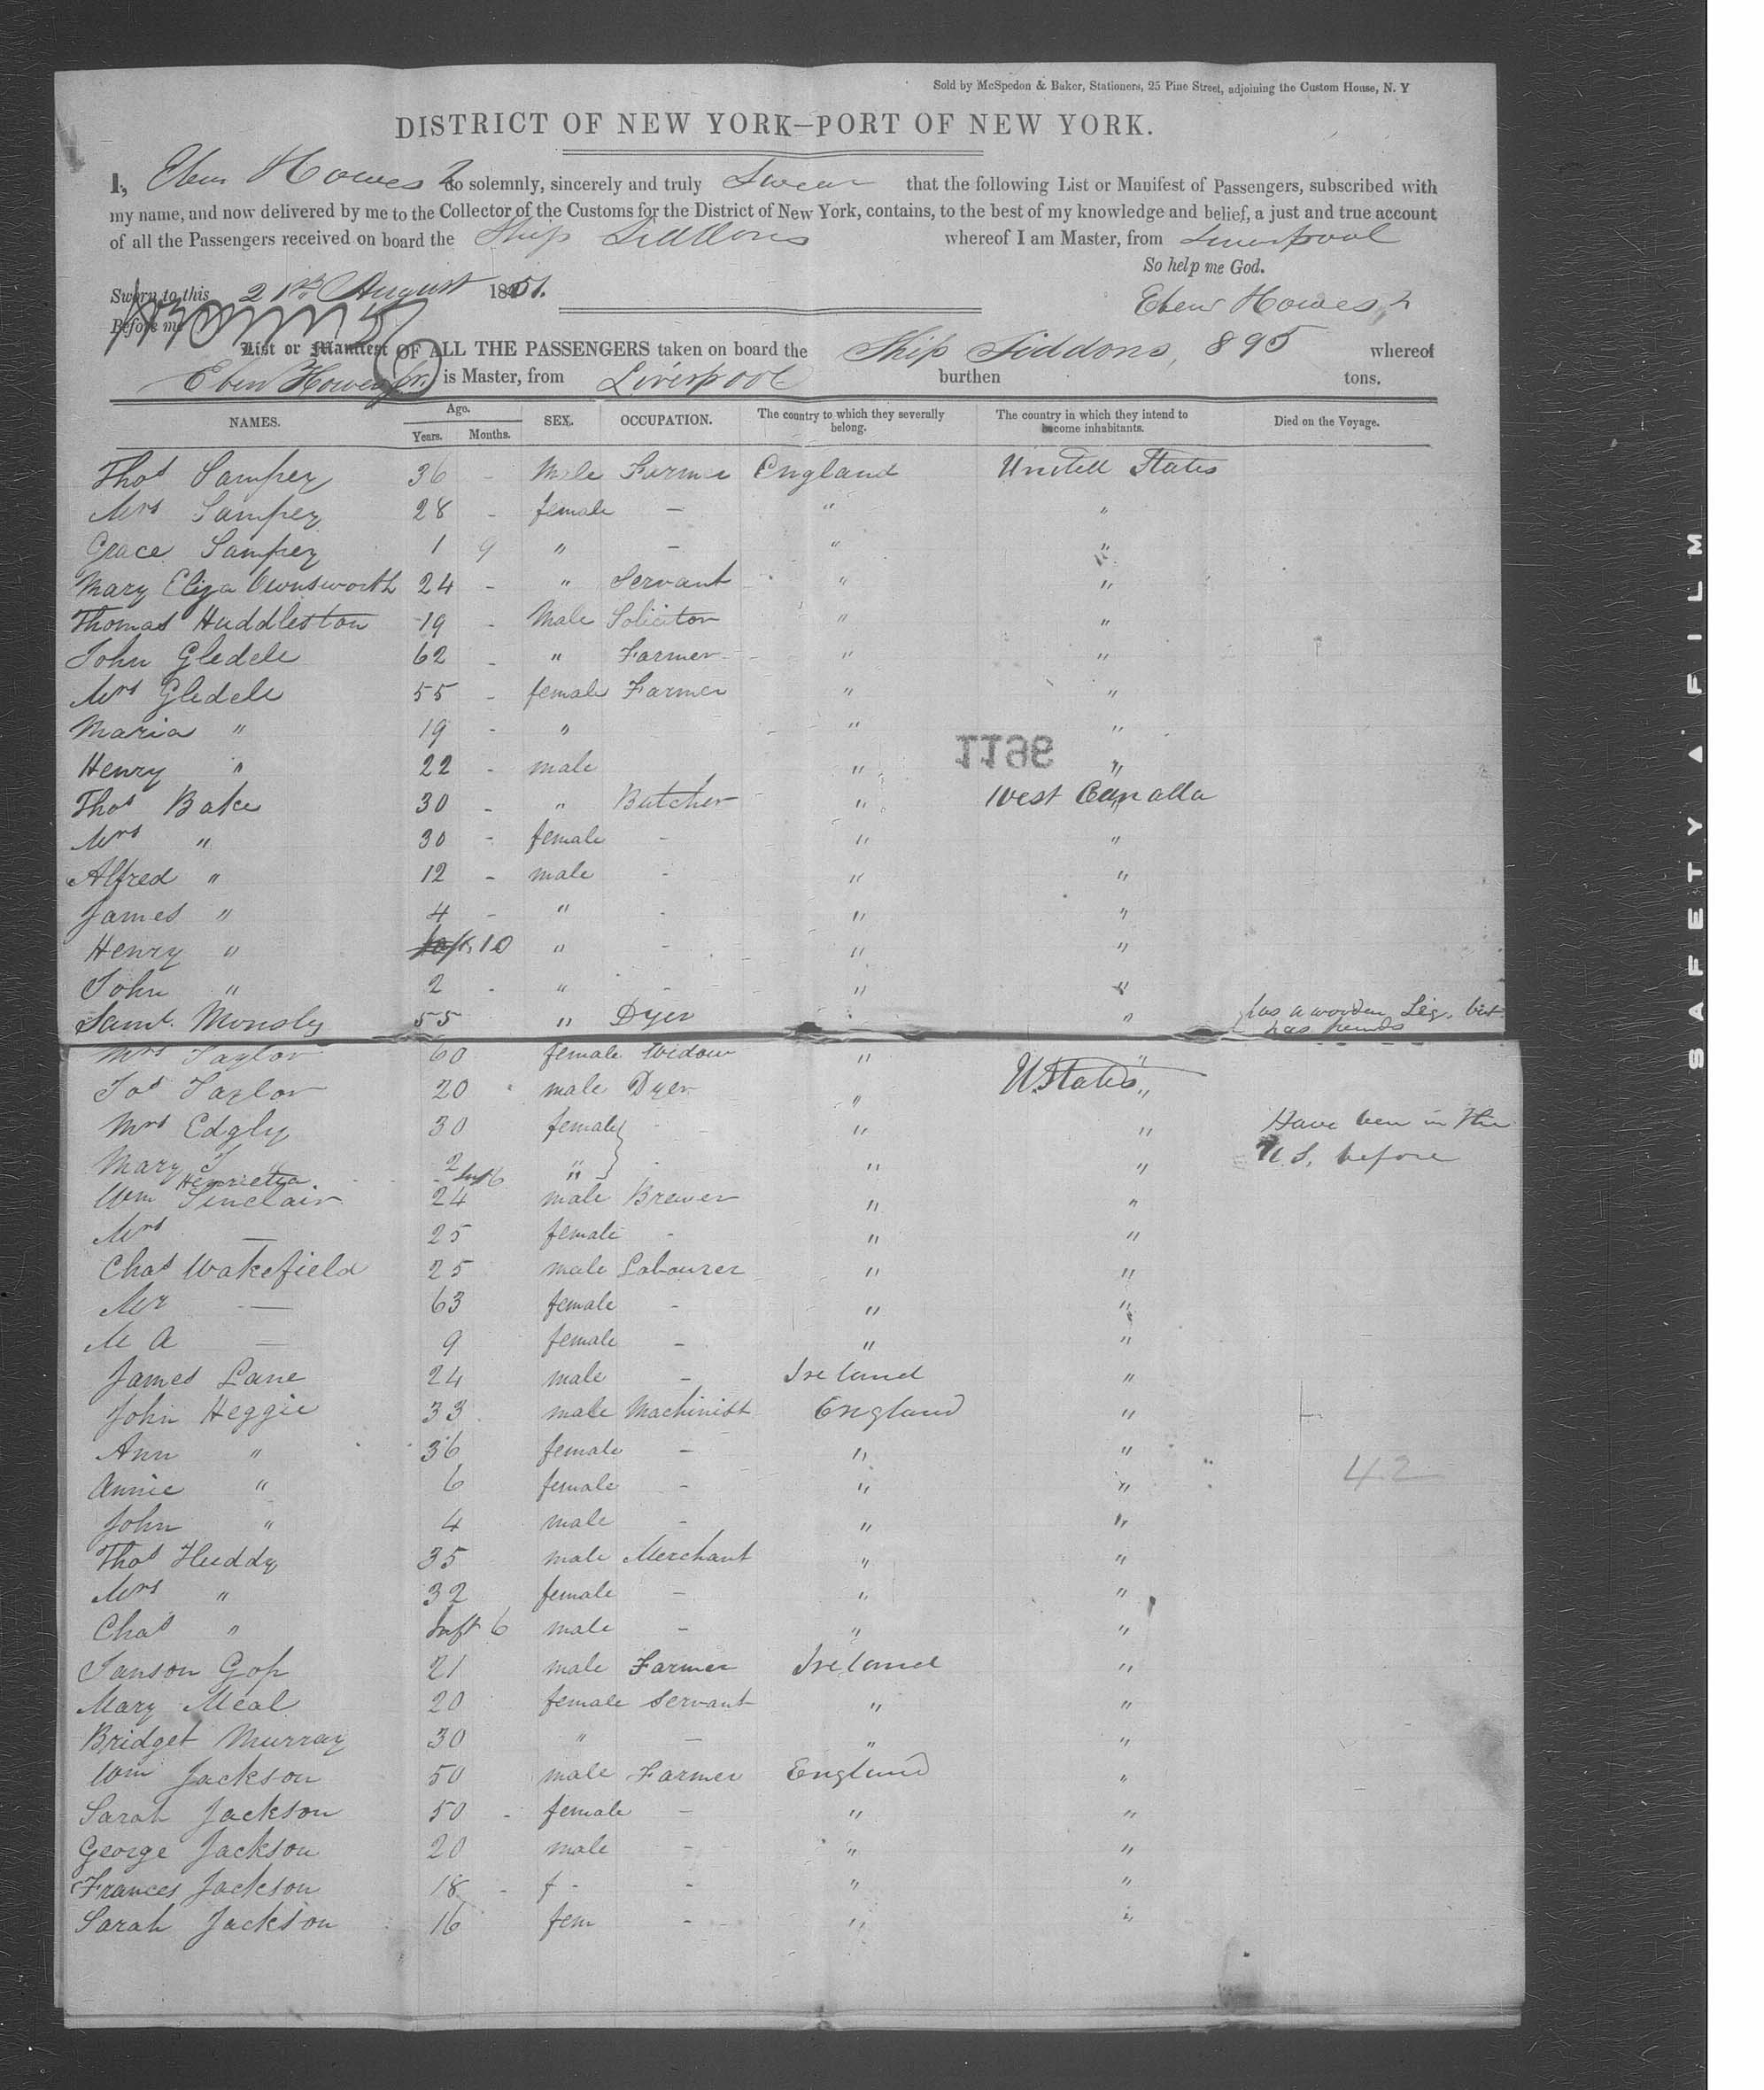 Sold by McSpedon & Baker, Stationers, 25 Pine Street, adjoining the Custom House, N. Y
DISTRICT OF NEW YORK—PORT OF NEW YORK.
I, Eben Howes 2 do solemnly, sincerely and truly Swear that the following List or Manifest of Passengers, subscribed with
my name, and now delivered by me to the Collector of the Customs for the District of New York, contains, to the best of my knowledge and belief, a just and true account
of all the Passengers received on board the Ship Siddons whereof I am Master, from Liverpool
So help me God.
Sworn to this 21st August 1851.
Eben Howes 2
Before me
List or Manifest OF ALL THE PASSENGERS taken on board the Ship Siddons, 895 whereof
Eben Howes Jr. is Master, from Liverpool burthen tons.
NAMES. Age. Years. Months. SEX. OCCUPATION. The country to which they severally belong. The country in which they intend to become inhabitants. Died on the Voyage.
Thos Sampey 36 - Male Farmer England United States
Mrs Sampey 28 - female — " "
Grace Sampey 1 9 " — " "
Mary Eliza 24 - " Servant " "
Thomas Huddleston 19 - Male Solicitor " "
John Gledele 62 - " Farmer " "
Mrs Gledele 55 - female Farmer " "
Maria " 19 - " " "
1196
Henry " 22 - male " "
Thos Bake 30 - " Butcher " West Canada
Mrs " 30 - female - " "
Alfred " 12 - male - " "
James " 4 - " - " "
Henry " 10 " - " "
John " 2 - " - " "
Saml. Monsley 55 " Dyer " has a wooden Leg, but
has
Mrs Taylor 60 female Widow " "
Jos Taylor 20 male Dyer " U States "
Mrs Edgly 30 female - " " Have been in the
Mary J 2 " - " " U S. before
Henrietta Inft 6 "
Wm Sinclair 24 male Brewer " "
Mrs — 25 female - " "
Chas Wakefield 25 male Labourer " "
Mr — 63 female - " "
M A — 9 female - " "
James Lane 24 male - Ireland "
John Heggie 33 male Machinist England "
Ann " 36 female - " "
Annie " 6 female - " " 42
John " 4 male - " "
Thos Huddy 35 male Merchant " "
Mrs " 32 female - " "
Chas " Inft 6 male - " "
21 male Farmer Ireland "
Mary Meal 20 female Servant " "
Bridget Murray 30 " — " "
Wm Jackson 50 male Farmer England "
Sarah Jackson 50 - female — " "
George Jackson 20 male - " "
Frances Jackson 18 - f - - " "
Sarah Jackson 16 fem - " "
SAFETY FILM